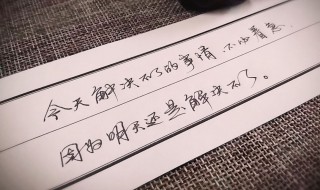 今天解决不了的事情,不必着急。
因为明天还是解决不了。